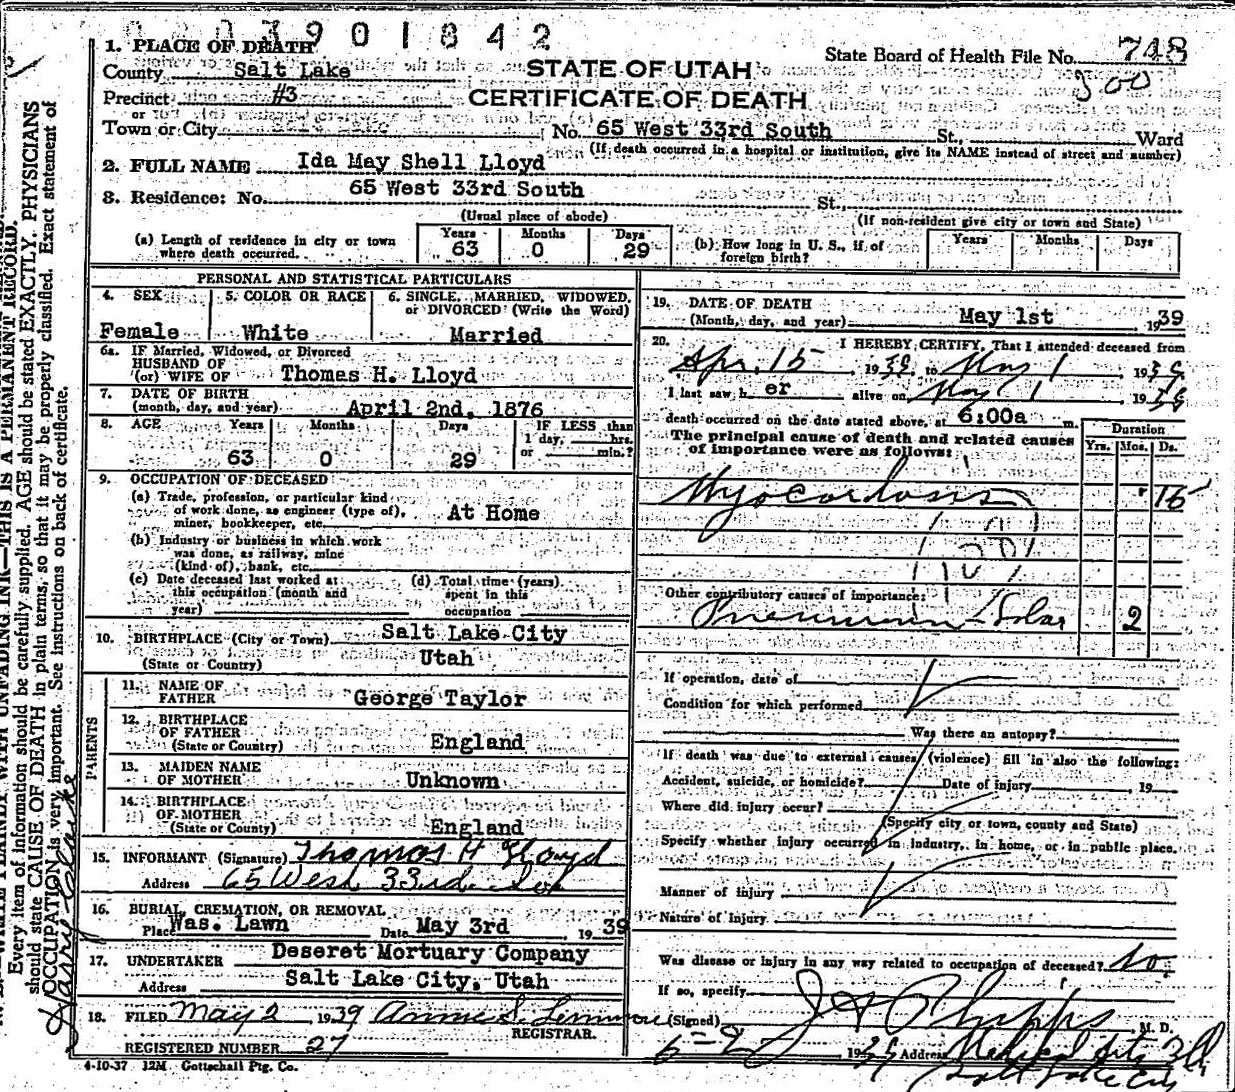 3901842
1. PLACE OF DEATH
State Board of Health File No. 748
County Salt Lake
STATE OF UTAH
300
Precinct #3
CERTIFICATE OF DEATH
or
Town or City No. 65 West 33rd South St., Ward
(If death occurred in a hospital or institution, give its NAME instead of street and number)
2. FULL NAME Ida May Shell Lloyd
3. Residence: No. 65 West 33rd South St.,
(Usual place of abode) (If non-resident give city or town and State)
(a) Length of residence in city or town where death occurred. Years 63 Months 0 Days 29
(b) How long in U. S., if of foreign birth? Years Months Days
PERSONAL AND STATISTICAL PARTICULARS
4. SEX 5. COLOR OR RACE 6. SINGLE, MARRIED, WIDOWED, or DIVORCED (Write the Word)
Female White Married
6a. IF Married, Widowed, or Divorced
HUSBAND OF
(or) WIFE OF Thomas H. Lloyd
7. DATE OF BIRTH
(month, day, and year) April 2nd, 1876
8. AGE Years Months Days IF LESS than
1 day, hrs.
or min.?
63 0 29
9. OCCUPATION OF DECEASED
(a) Trade, profession, or particular kind
of work done, as engineer (type of),
miner, bookkeeper, etc. At Home
(b) Industry or business in which work
was done, as railway, mine
(kind of), bank, etc.
(c) Date deceased last worked at
this occupation (month and
year)
(d) Total time (years)
spent in this
occupation
10. BIRTHPLACE (City or Town) Salt Lake City
(State or Country) Utah
PARENTS
11. NAME OF
FATHER George Taylor
12. BIRTHPLACE
OF FATHER
(State or Country) England
13. MAIDEN NAME
OF MOTHER Unknown
14. BIRTHPLACE
OF MOTHER
(State or Country) England
15. INFORMANT (Signature) Thomas H Lloyd
Address 65 West 33rd So
16. BURIAL, CREMATION, OR REMOVAL
Place Was. Lawn Date May 3rd 1939
17. UNDERTAKER Deseret Mortuary Company
Address Salt Lake City, Utah
18. FILED May 2 1939 Annie S.
REGISTRAR.
REGISTERED NUMBER 27
4-10-37 12M Gottschall Ptg. Co.
19. DATE OF DEATH
(Month, day, and year) May 1st, 1939
20. I HEREBY CERTIFY, That I attended deceased from
Apr. 15 1939 to May 1 1939
I last saw her alive on May 1 1939
death occurred on the date stated above, at 6:00a m.
The principal cause of death and related causes
of importance were as follows:
Duration
Yrs. Mos. Ds.
Myocardosis 15
Other contributory causes of importance:
Pneumonia - Lobar 2
If operation, date of
Condition for which performed
Was there an autopsy?
If death was due to external causes (violence) fill in also the following:
Accident, suicide, or homicide? Date of injury 19
Where did injury occur?
(Specify city or town, county and State)
Specify whether injury occurred in industry, in home, or in public place.
Manner of injury
Nature of Injury
Was disease or injury in any way related to occupation of deceased? No.
If so, specify
(Signed) Phipps M. D.
5-2 1939 Address Medical Arts Bldg
Salt Lake City
Every item of information should be carefully supplied. AGE should be stated EXACTLY. PHYSICIANS
should state CAUSE OF DEATH in plain terms, so that it may be properly classified. Exact statement of
OCCUPATION is very important. See instructions on back of certificate.